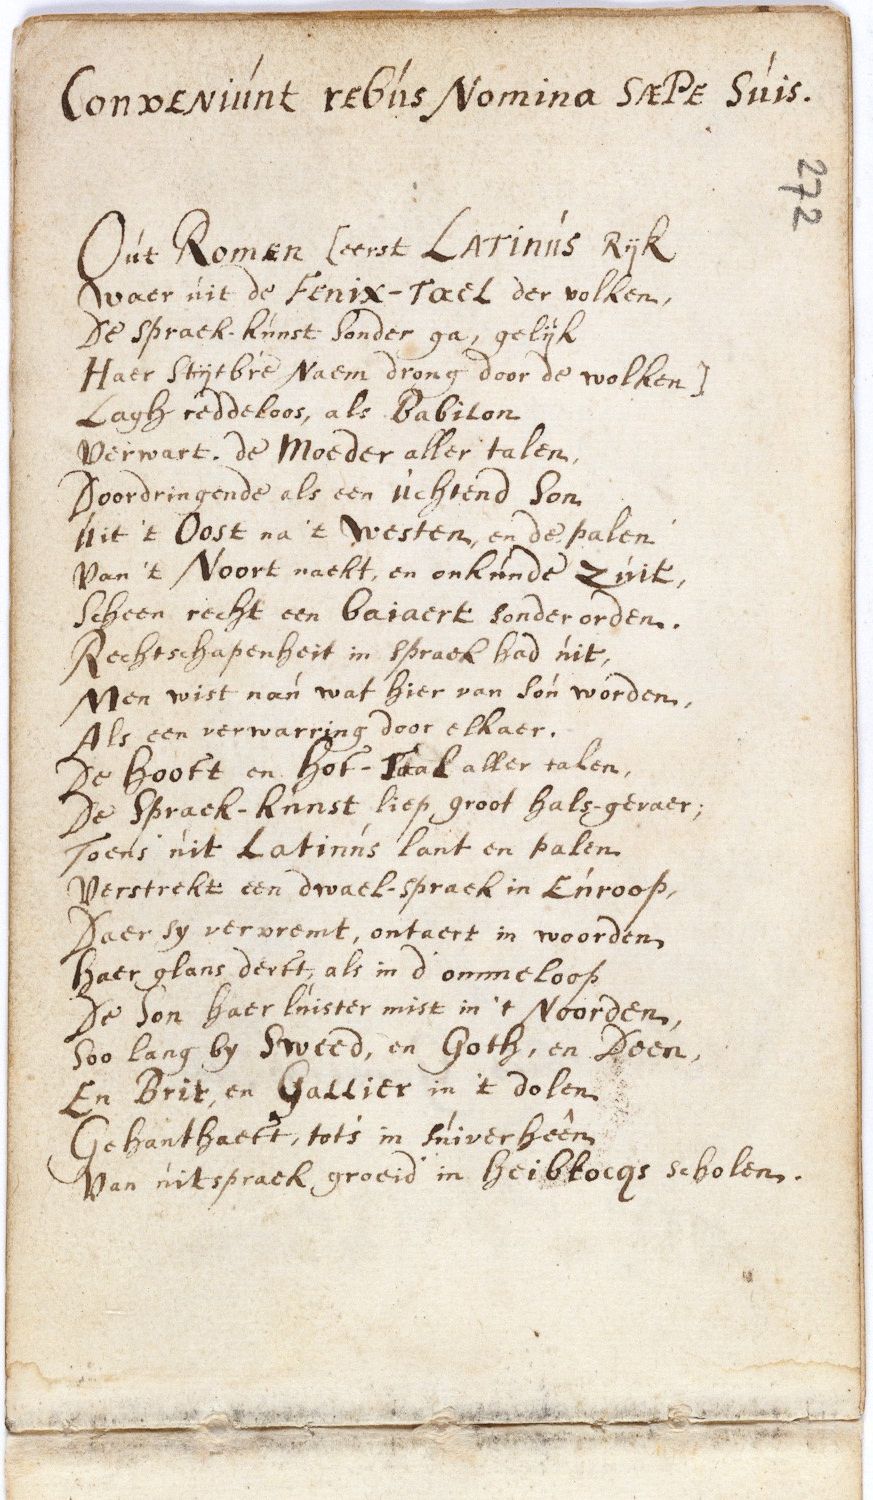 Conveniúnt rebús Nomina sæpe súis.
272
Oút Romen [eerst Latinús Rijk
Waer úit de Fenix-Tael der volken,
De spraek-kúnst sonder ga, gelijk
Haer Naem drong door de wolken]
Lagh reddeloos, als Babilon
Verwart. de Moeder aller talen,
Doordringende als een úchtend Son
Úit 't Oost na 't Westen, en de palen
Van 't Noort naekt, en onkúnde Zúit,
Scheen recht een baiaert sonder orden.
Rechtschapenheit in spraek had úit,
Men wist naú wat hier van soú worden,
Als een verwarring door elkaer.
De hooft en hof-Taal aller talen,
De Spraek-kúnst liep groot hals-gevaer;
Toens úit Latinús lant en palen
Verstrekt een dwael-spraek in Eúroop,
Daer sy vervremt, ontaert in woorden
haer glans derft, als in d'ommeloop
De Son haer lúister mist in 't Noorden,
Soo lang by Sweed, en Goth, en Deen,
En Brit, en Gallier in 't dolen
Gehanthaeft, tots in súiverheên
Van úitspraek groeid' in heiblocqs scholen.